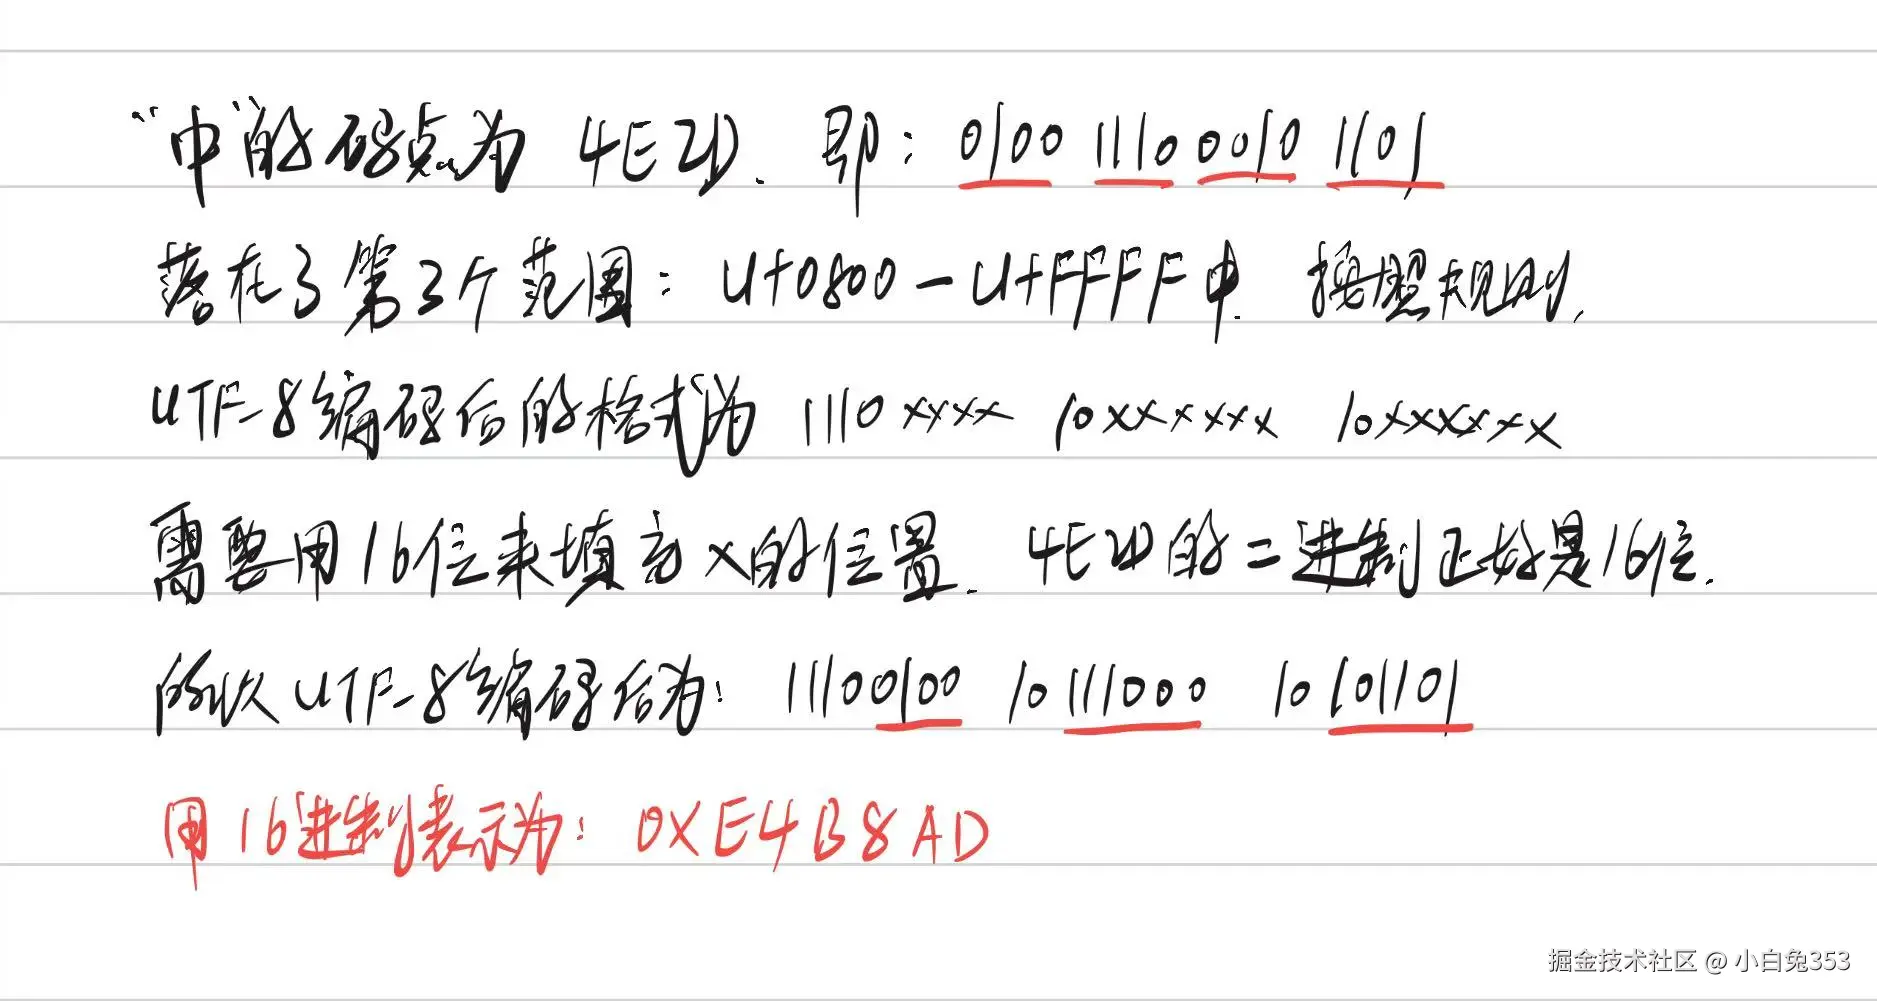 “中”的码点为 4E2D. 即: 0100 1110 0010 1101
落在了第3个范围: U+0800-U+FFFF中. 按照规则,
UTF-8编码后的格式为 1110xxxx 10xxxxxx 10xxxxxx
需要用16位来填充x的位置. 4E2D的二进制正好是16位.
所以UTF-8编码后为: 11100100 10111000 10101101
用16进制表示为: 0XE4B8AD
掘金技术社区 @ 小白兔353